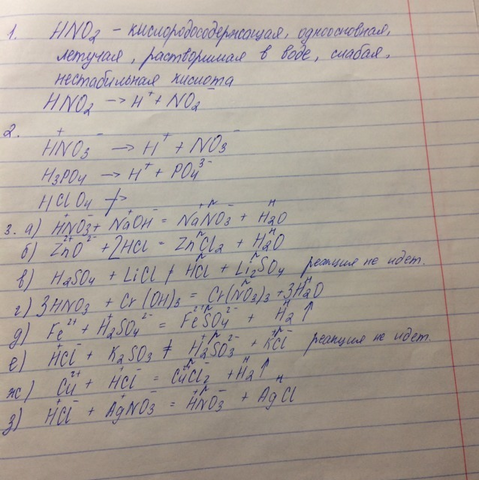 1. HNO2 – кислородосодержащая, одноосновная,
летучая, растворимая в воде, слабая,
нестабильная кислота
HNO2 → H⁺ + NO2⁻
2. H⁺NO3⁻ → H⁺ + NO3⁻
H3PO4 → H⁺ + PO4³⁻
HClO4 ↛
3. а) H⁺NO3⁻ + Na⁺OH⁻ = NaNO3 + H2O
б) Zn²⁺O²⁻ + 2HCl = ZnCl2 + H2O
в) H2SO4 + LiCl ≠ HCl + Li2SO4 реакция не идет.
г) 3HNO3 + Cr(OH)3 = Cr(NO3)3 + 3H2O
д) Fe²⁺ + H2SO4²⁻ = Fe²⁺SO4²⁻ + H2↑
е) H⁺Cl⁻ + K2SO3 ≠ H2⁺SO3²⁻ + K⁺Cl⁻ реакция не идет.
ж) Cu²⁺ + H⁺Cl⁻ = CuCl2 + H2↑
з) H⁺Cl⁻ + Ag⁺NO3⁻ = H⁺NO3⁻ + AgCl